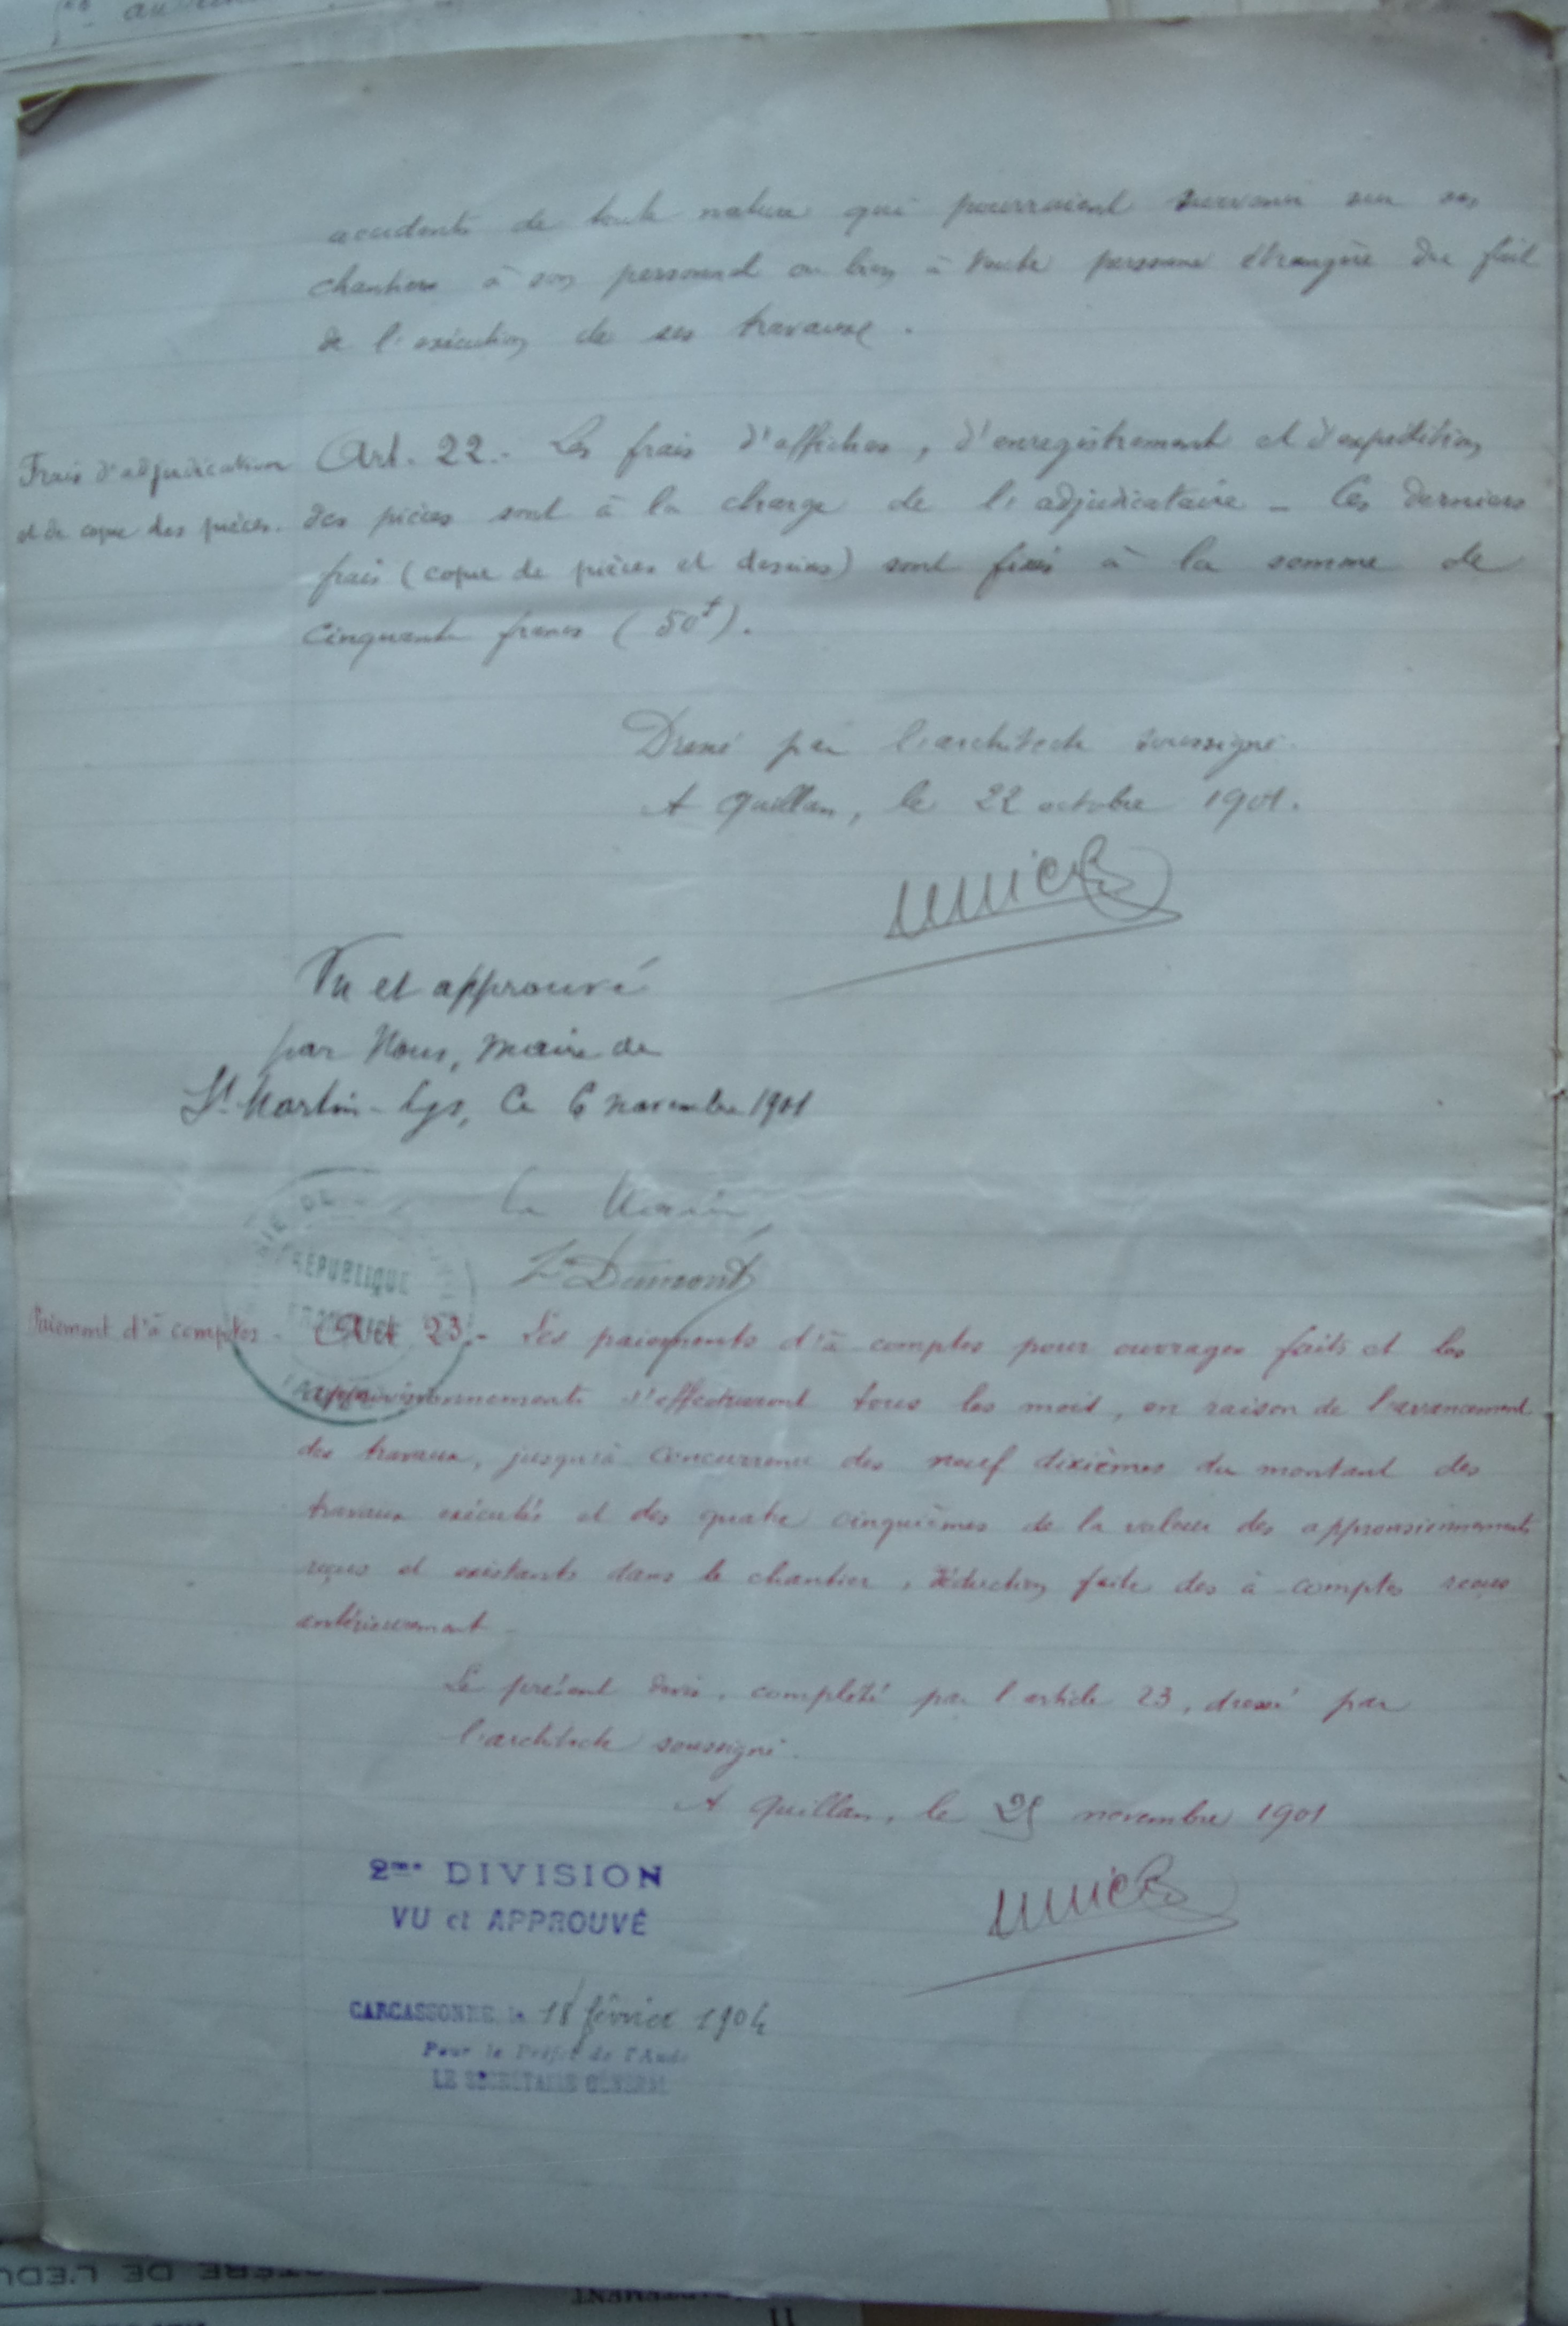 accidents de toute nature qui pourraient survenir sur ses
chantiers à son personnel ou bien à toute personne étrangère du fait
de l'exécution de ses travaux.
Frais d'adjudication
et de copie des pièces.
Art. 22.- Les frais d'affiches, d'enregistrement et d'expédition
des pièces sont à la charge de l'adjudicataire - Ces derniers
frais (copie de pièces et dessins) sont fixés à la somme de
Cinquante francs (50f).
Dressé par l'architecte soussigné.
A Quillan, le 22 octobre 1901.
Vu et approuvé
par Nous, maire de
St Martin-Lys, Ce 6 novembre 1901
Le Maire,
Dumont
MAIRIE DE
RÉPUBLIQUE
Paiement d'à comptes -
Art. 23.- Les paiements d'à comptes pour ouvrages faits et les
approvisionnements s'effectueront tous les mois, en raison de l'avancement
des travaux, jusqu'à concurrence des neuf dixièmes du montant des
travaux exécutés et des quatre cinquièmes de la valeur des approvisionnements
reçus et existants dans le chantier, déduction faite des à comptes reçus
antérieurement.
Le présent devis, complété par l'article 23, dressé par
l'architecte soussigné.
A Quillan, le 25 novembre 1901
2me DIVISION
VU et APPROUVÉ
CARCASSONNE, le 18 février 1904
Pour le Préfet de l'Aude
LE SECRÉTAIRE GÉNÉRAL